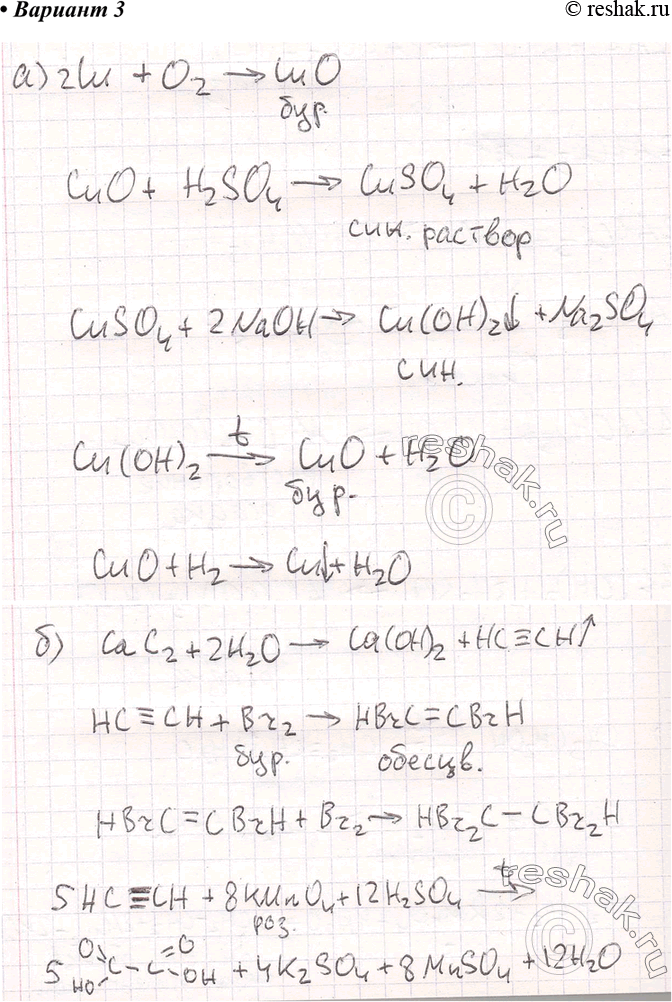 • Вариант 3 © reshak.ru
а) 2Cu + O₂ → CuO
бур.
CuO + H₂SO₄ → CuSO₄ + H₂O
син. раствор
CuSO₄ + 2NaOH → Cu(OH)₂↓ + Na₂SO₄
син.
Cu(OH)₂ →(t) CuO + H₂O
бур.
reshak.ru
©
CuO + H₂ → Cu↓ + H₂O
б) CaC₂ + 2H₂O → Ca(OH)₂ + HC≡CH↑
HC≡CH + Br₂ → HBrC=CBrH
бур. обесцв.
HBrC=CBrH + Br₂ → HBr₂C–CBr₂H
5HC≡CH + 8KMnO₄ + 12H₂SO₄ →(t)
роз.
5 O=C(HO)–C(=O)OH + 4K₂SO₄ + 8MnSO₄ + 12H₂O
reshak.ru
©